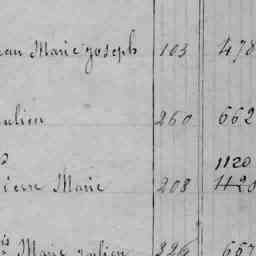 ean Marie Joseph 103 478
ulien 260 662
1120
ierre Marie 208 1120
Marie Julien 326 667